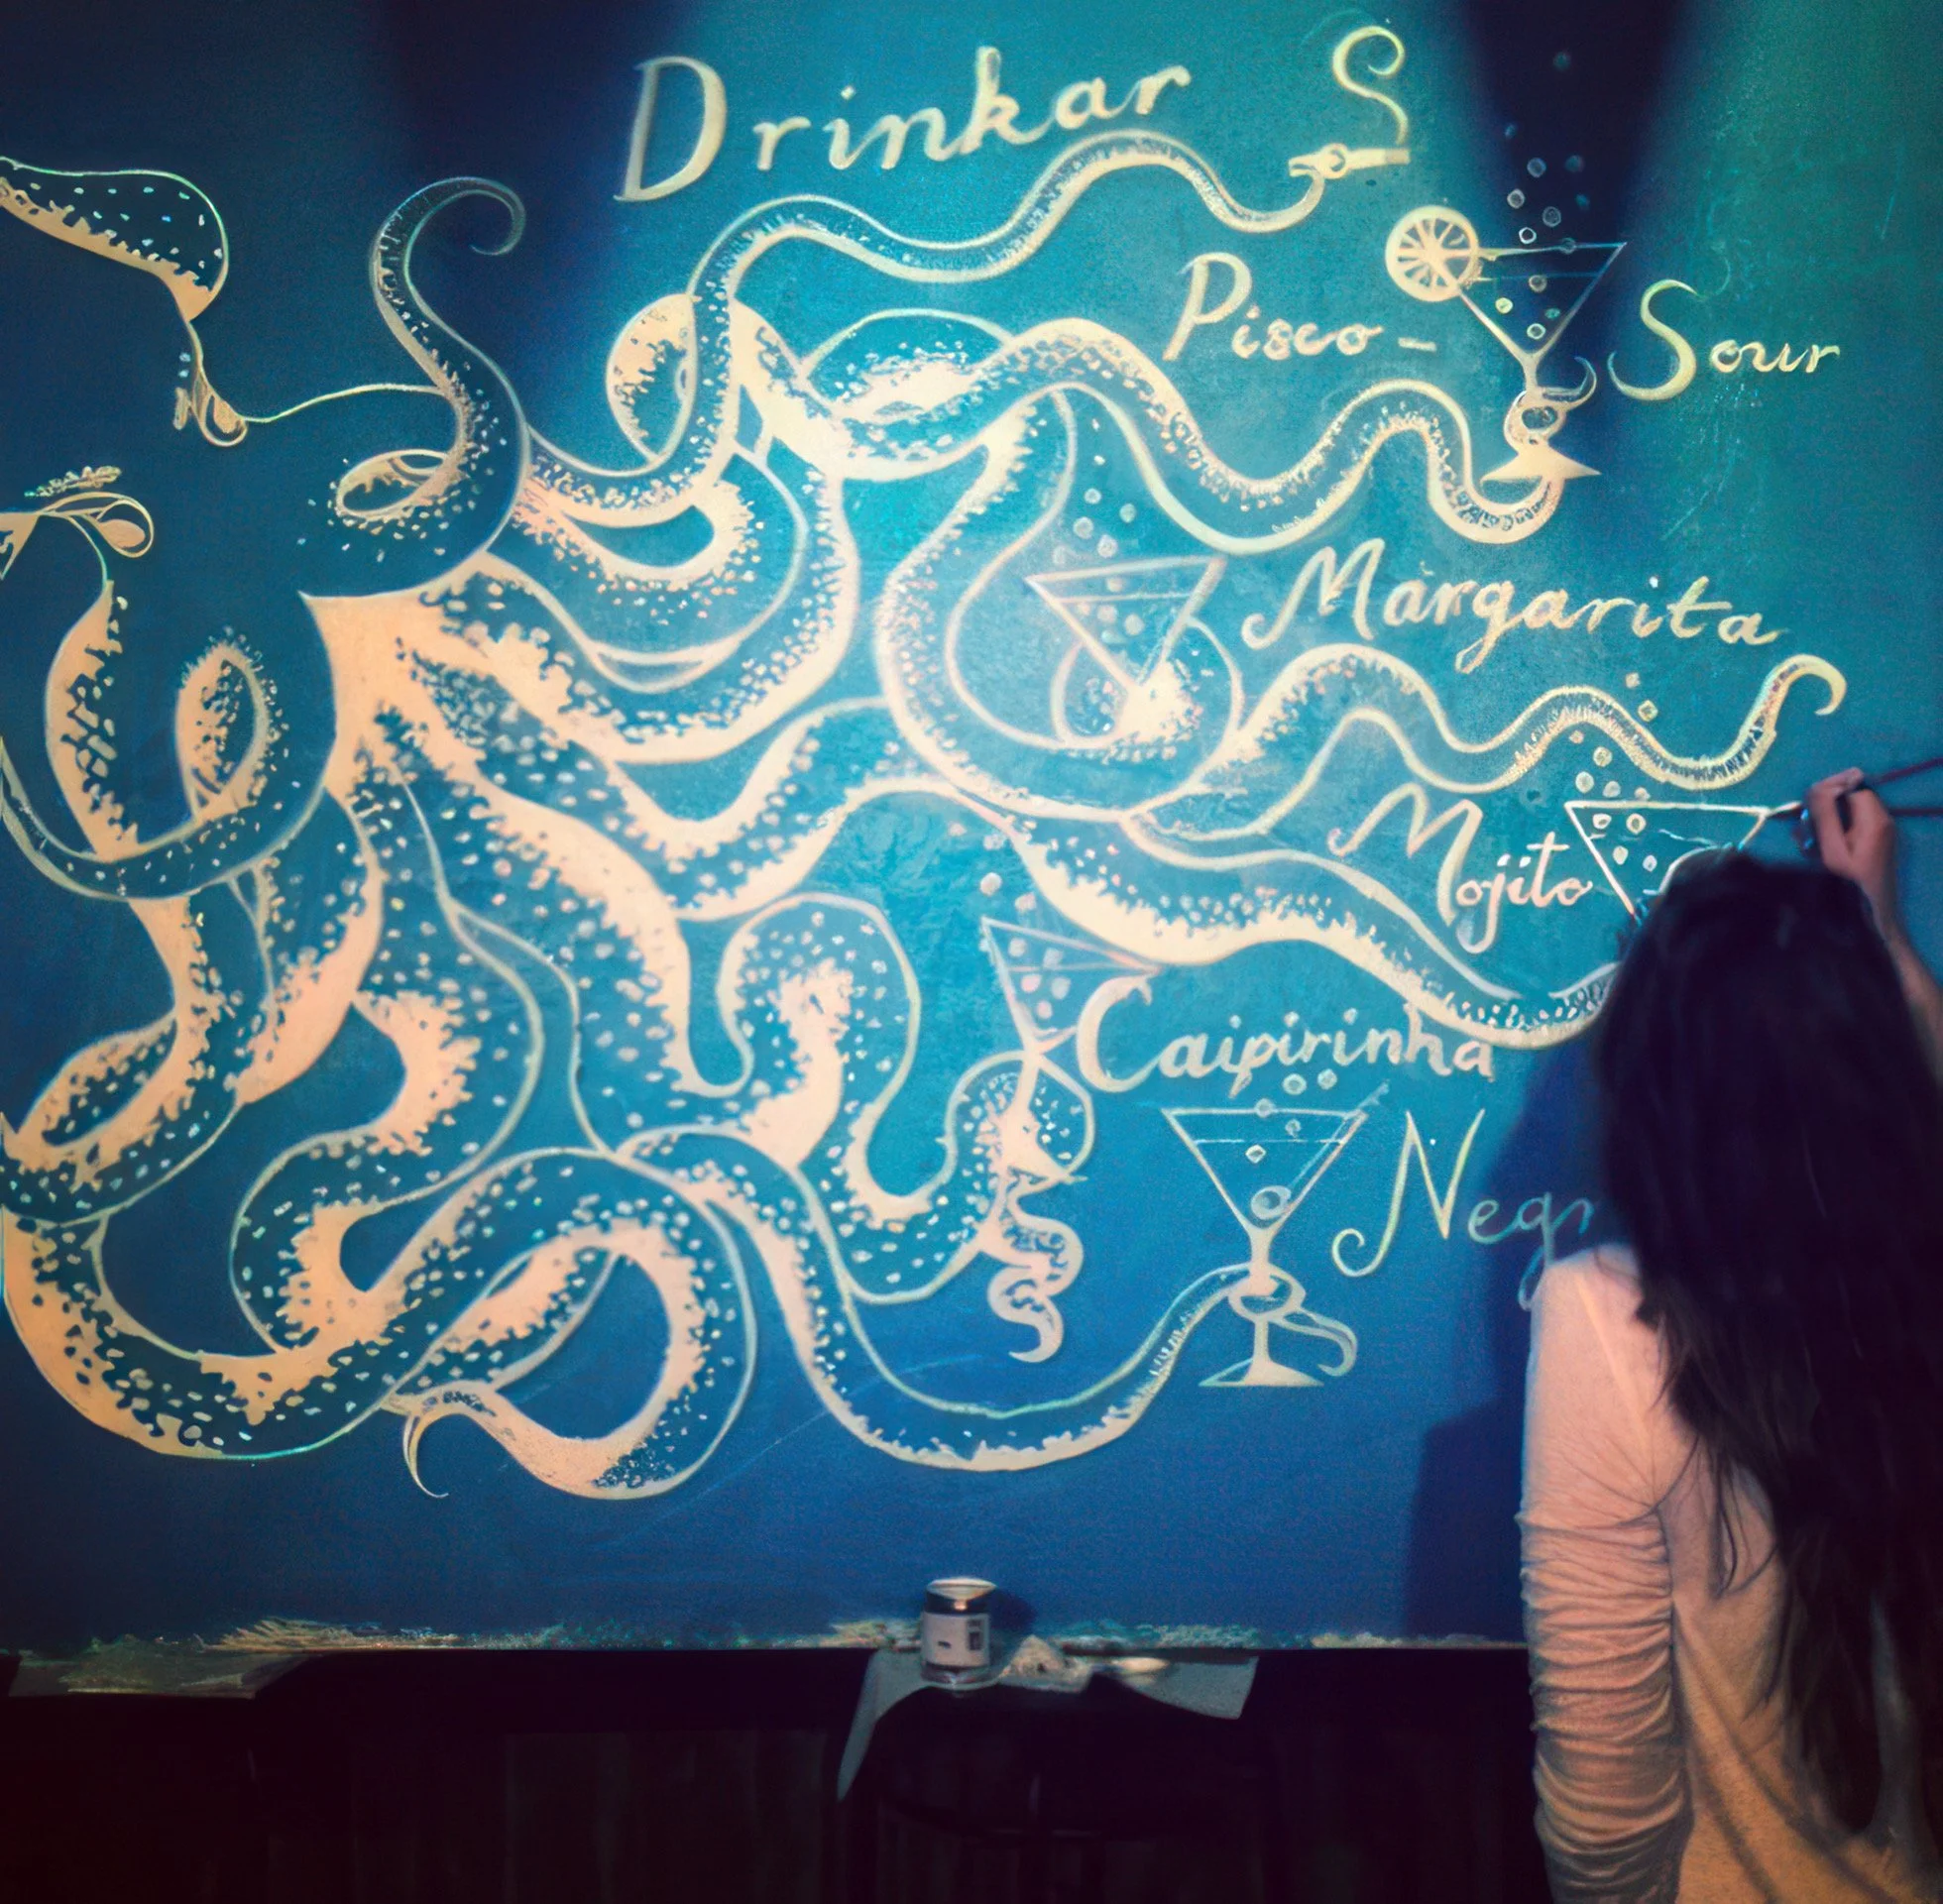 Drinkar S
Pisco - Sour
Margarita
Mojito
Caipirinha
Negr